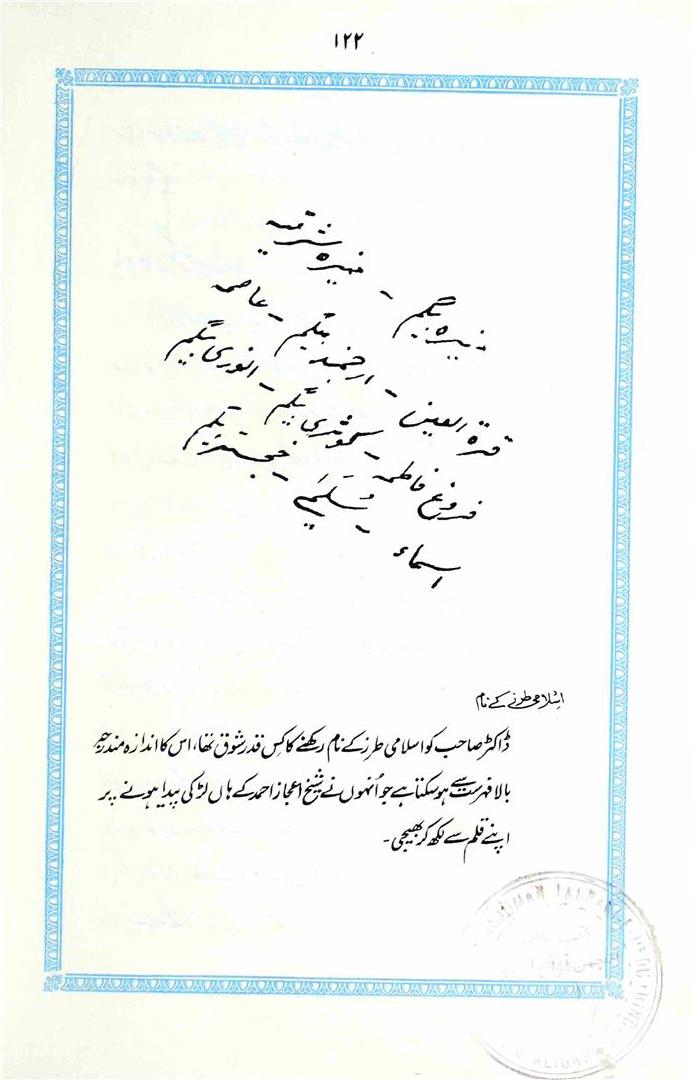 ۱۲۲
منیرہ بیگم - منیرہ شرقیہ
ارجمند بیگم - عاصمہ
قرۃ العین - انوری بیگم
فروغ فاطمہ - بیگم
سلمیٰ - خجستہ بیگم
اسماء -
اسلامی طرز کے نام
ڈاکٹر صاحب کو اسلامی طرز کے نام رکھنے کا کس قدر شوق تھا، اس کا اندازہ مندرجہ
بالا فہرست سے ہو سکتا ہے جو اُنہوں نے شیخ اعجاز احمد کے ہاں لڑکی پیدا ہونے پر
اپنے قلم سے لکھ کر بھیجی -